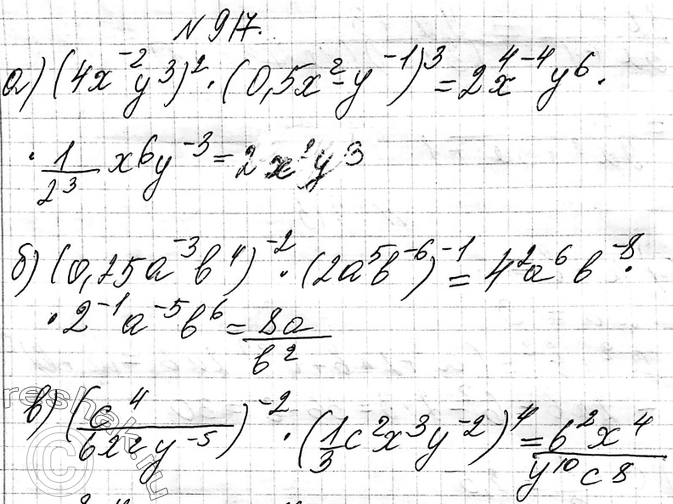 № 917.
а) (4x⁻²y³)² · (0,5x²y⁻¹)³ = 2⁴x⁻⁴y⁶ ·
· 1/2³ x⁶y⁻³ = 2x²y³
б) (0,25a⁻³b⁴)⁻² · (2a⁵b⁻⁶)⁻¹ = 4²a⁶b⁻⁸ ·
· 2⁻¹a⁻⁵b⁶ = 8a/b²
в) (c⁴/6x²y⁻⁵)⁻² · (1/3 c²x³y⁻²)⁴ = 6²x⁴/y¹⁰c⁸